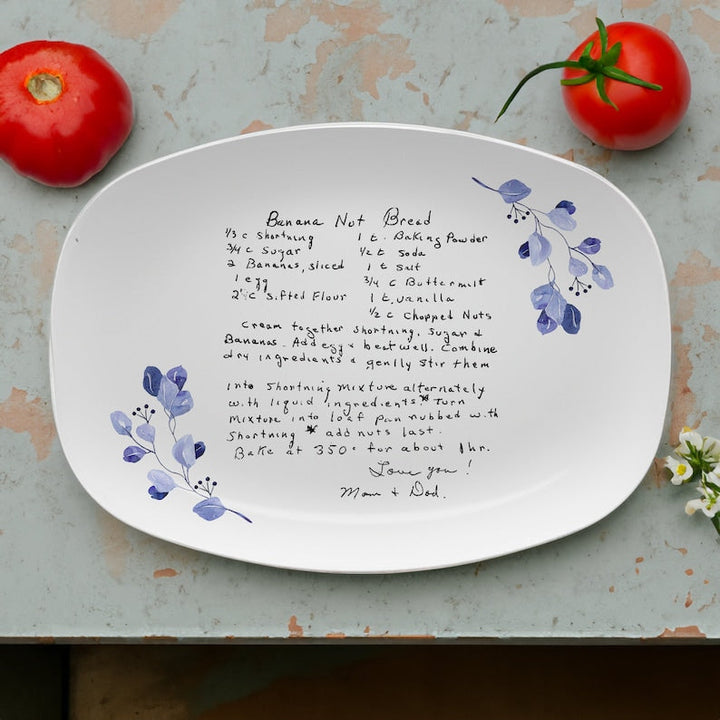 Banana Nut Bread
1/3 c Shortning
3/4 c Sugar
2 Bananas, sliced
1 egg
2 1/2 c sifted Flour
1 t. Baking Powder
1/2 t Soda
1 t salt
3/4 c Buttermilt
1 t. vanilla
1/2 c Chopped Nuts
Cream together Shortning, Sugar &
Bananas. Add egg & beat well. Combine
dry ingredients & gently stir them
into shortning mixture alternately
with liquid ingredients.* Turn
mixture into loaf pan rubbed with
Shortning * add nuts last.
Bake at 350° for about 1 hr.
Love you!
Mom & Dad.